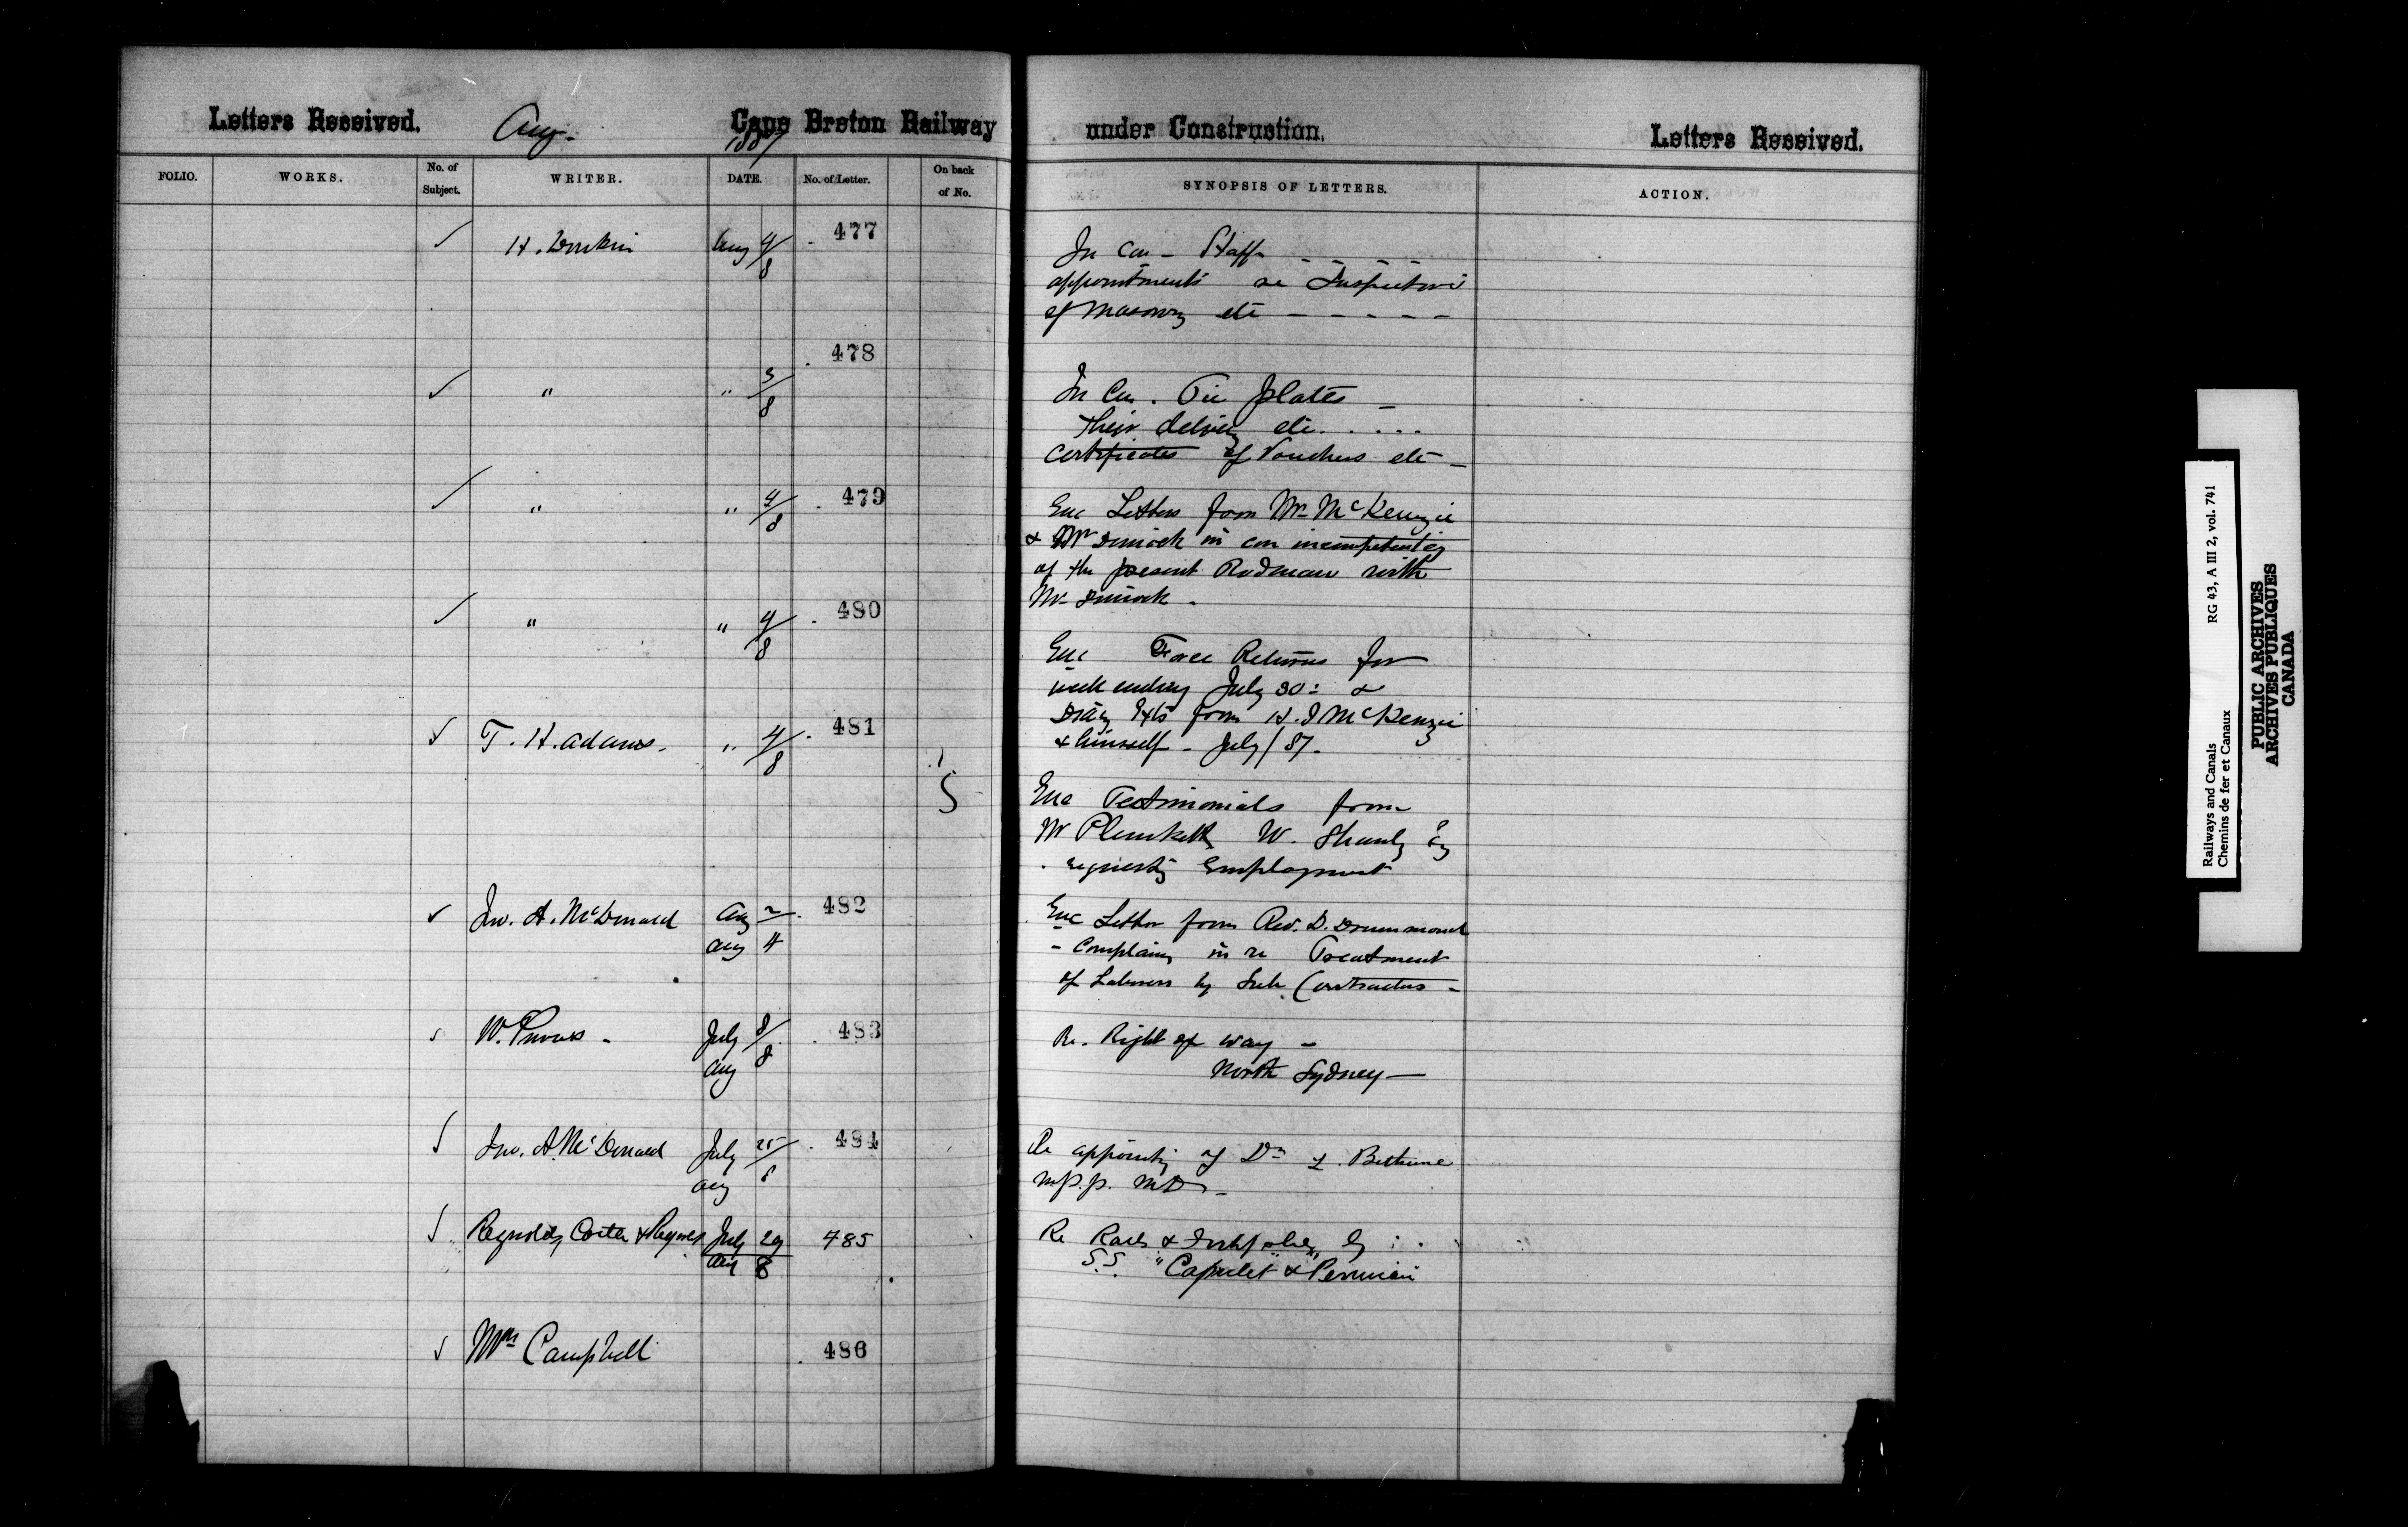 Letters Received. Aug. 1887 Cape Breton Railway
under Construction. Letters Received.
FOLIO. WORKS. No. of Subject. WRITER. DATE. No. of Letter. On back of No.
SYNOPSIS OF LETTERS. ACTION.
✓ H. Donkin Aug 4/8 477
In Con - Staff - - - - -
appointments as Inspectors
of Masonry etc - - - - -
✓ " " 5/8 478
In Con. Tie plates -
their delivery etc. . . . .
Certificates of Vouchers etc -
✓ " " 4/8 479
Enc Letters from Mr McKenzie
& Mr Dimock in con incompetency
of the present Rodman with
Mr Dimock -
✓ " " 4/8 480
Enc Force Returns for
week ending July 30: &
Diary from H. McKenzie
& himself - July/87.
✓ T. H. Adams. " 4/8 481
5
Enc Testimonials from
Mr Plunkett W. Shanly
requesting Employment
✓ Jno. A. McDonald Aug 2 Aug 4 482
Enc Letter from Rev. D. Drummond
- Complaing in re Treatment
of Laborers by Sub Contractors -
W. July 8/8 Aug 483
Re. Right of way -
North Sydney -
✓ Jno. A. McDonald July 25 Aug 8 484
Re appointing of Dr Bethune
M.P.P. MD -
✓ Reynolds, & July 29 Aug 8 485
Re Rails & by
S.S. "Capulet & Peruvian"
✓ Mrs Campbell 486
Railways and Canals RG 43, A III 2, vol. 741
Chemins de fer et Canaux
PUBLIC ARCHIVES
ARCHIVES PUBLIQUES
CANADA